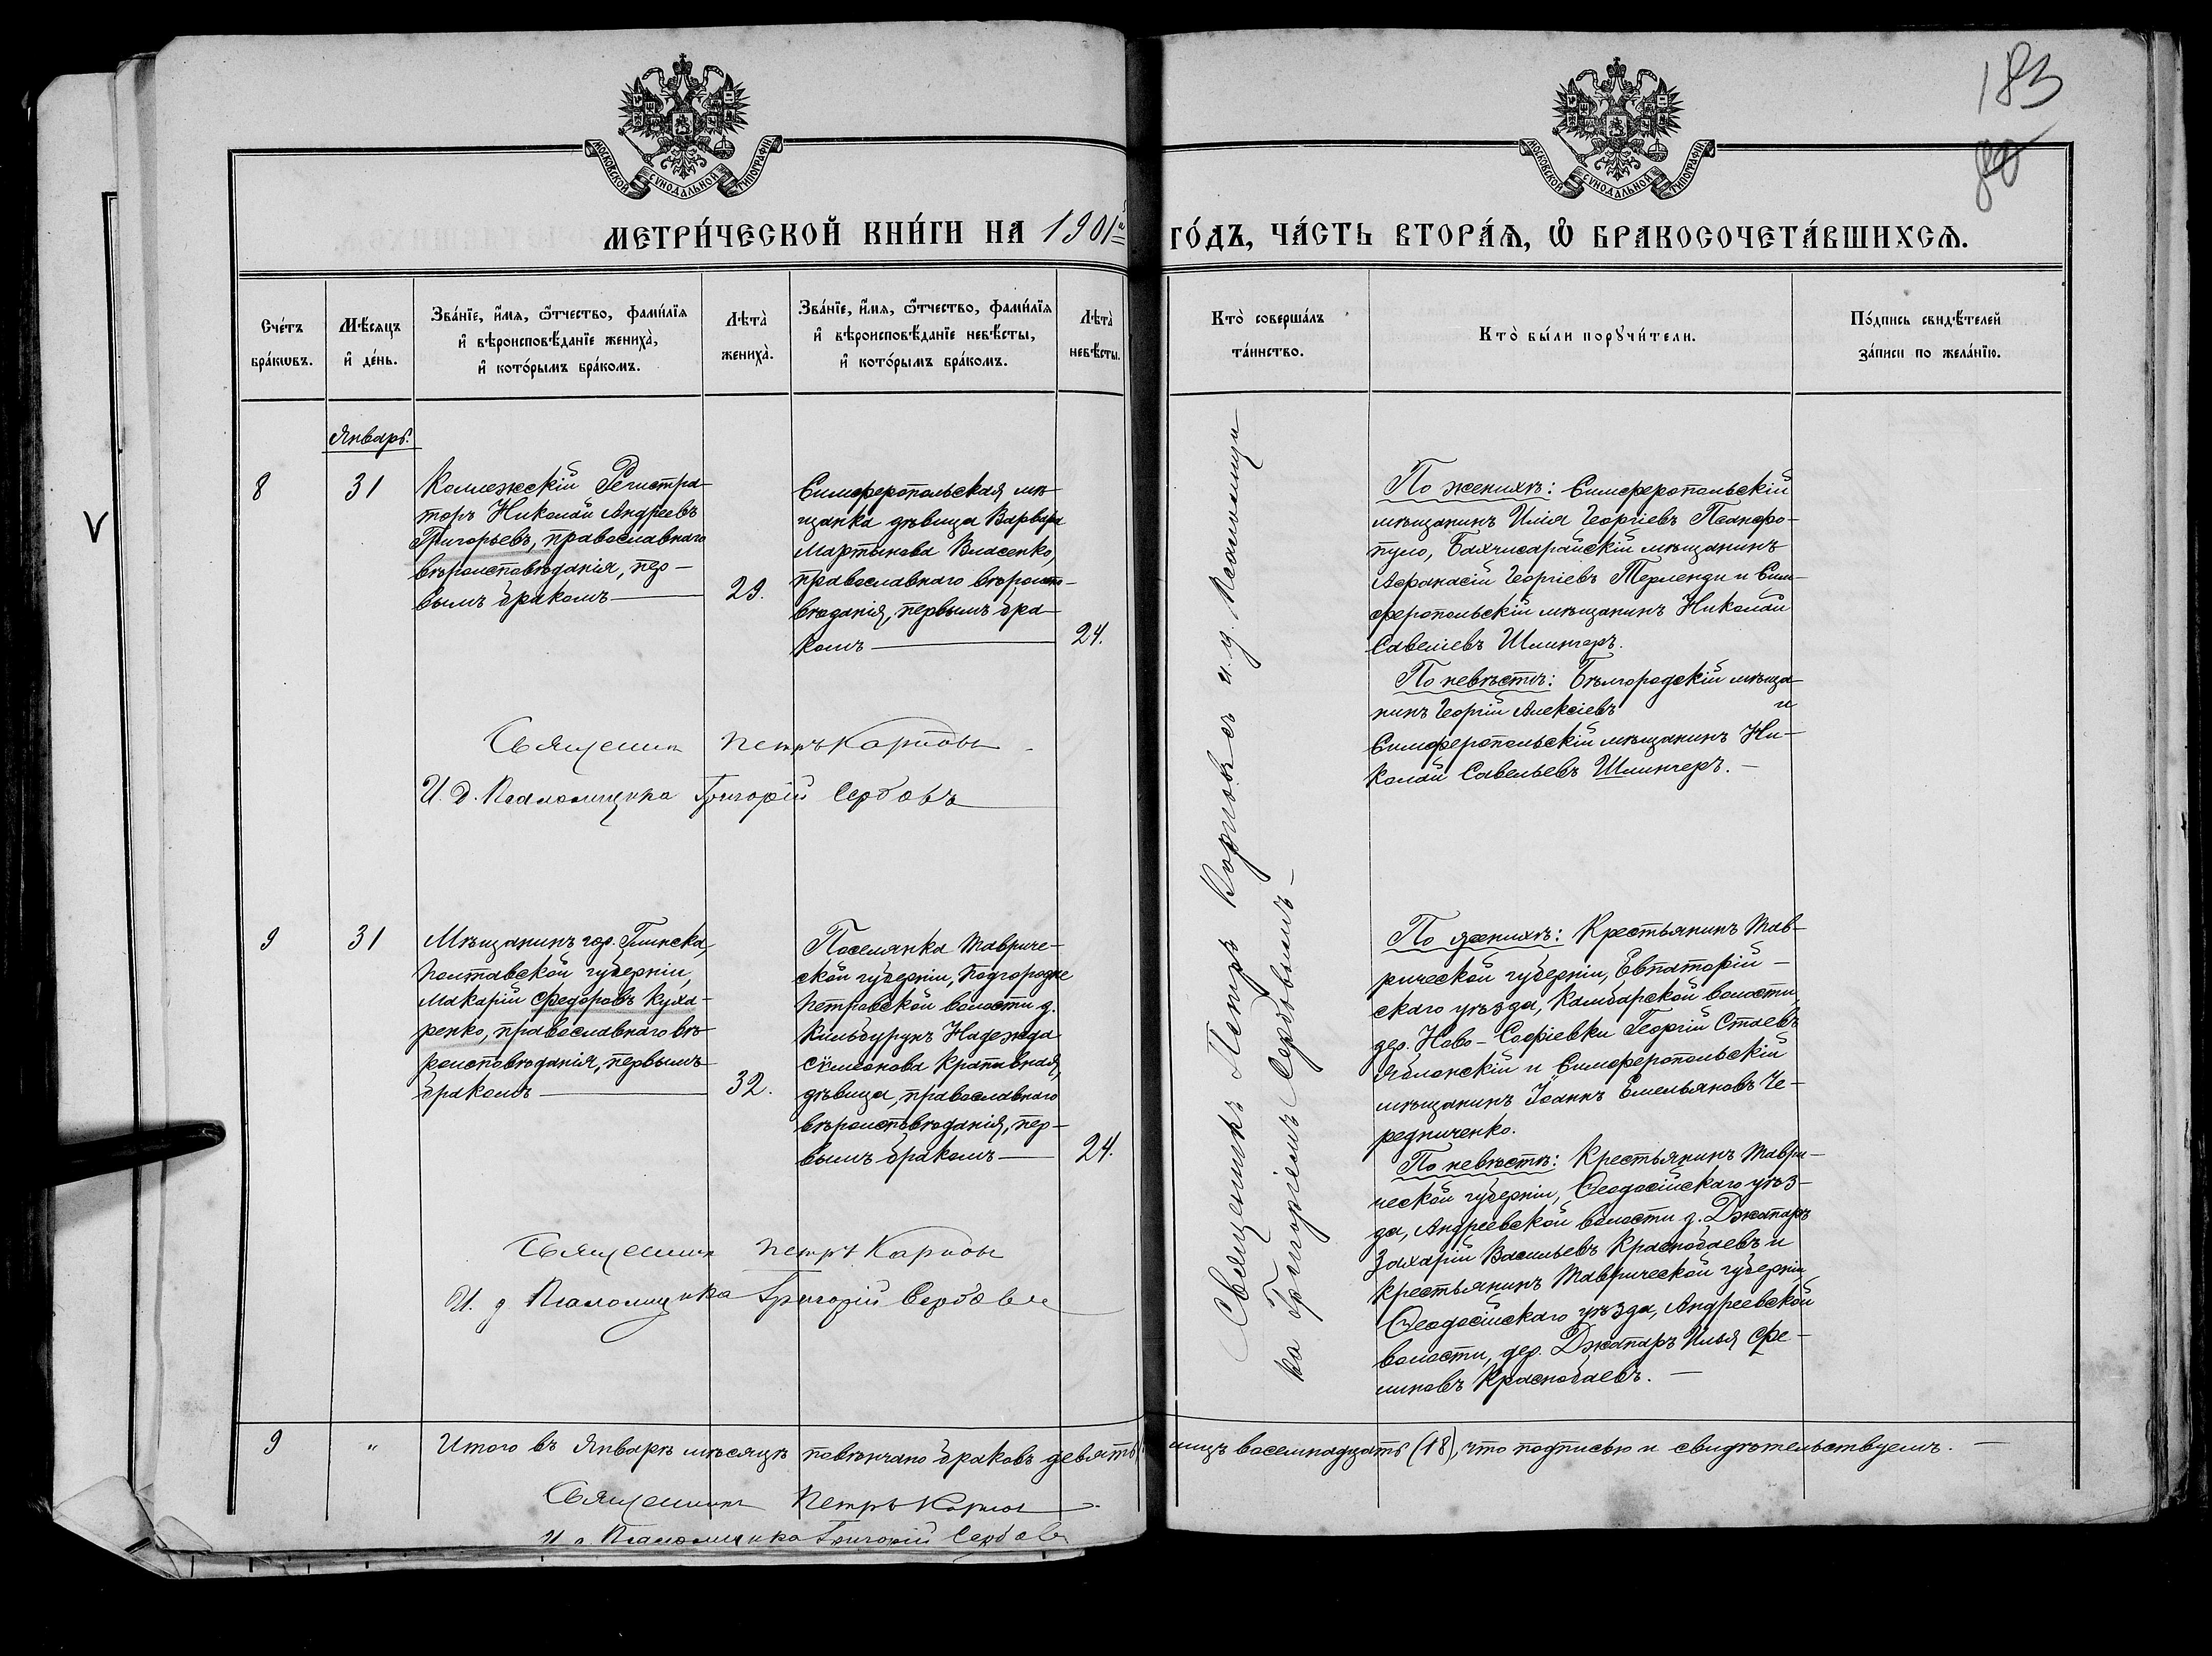 183
80
МОСКОВСКОЙ СѴНОДАЛЬНОЙ ТИПОГРАФІИ
МОСКОВСКОЙ СѴНОДАЛЬНОЙ ТИПОГРАФІИ
МЕТРИ́ЧЕСКОЙ КНИ́ГИ НА 1901й ГО́ДЪ, ЧА́СТЬ ВТОРА́Ѧ, Ѽ БРАКОСОЧЕТА́ВШИХСѦ.
Сче́тъ
бра́кѡвъ.
Мѣ́сяцъ
и҆ де́нь.
Зва́нїе, и҆́мѧ, ѻ҆́тчество, фами́лїѧ
и҆ вѣроисповѣ́данїе жениха̀,
и҆ кото́рымъ бра́комъ.
Лѣта̀
жениха̀.
Зва́нїе, и҆́мѧ, ѻ҆́тчество, фами́лїѧ
и҆ вѣроисповѣ́данїе невѣ́сты,
и҆ кото́рымъ бра́комъ.
Лѣта̀
невѣ́сты.
Кто̀ соверша́лъ
та́инство.
Кто̀ бы́ли порꙋчи́тели.
По́дпись свидѣ́телей
за́писи по жела́нїю.
Январь.
8
31
Коллежскій Регистра-
торъ Николай Андреевъ
Григорьевъ, православнаго
вѣроисповѣданія, пер-
вымъ бракомъ
29.
Симферопольская мѣ-
щанка дѣвица Варвара
Мартынова Власенко,
православнаго вѣроиспо-
вѣданія, первымъ бра-
комъ
24.
По женихѣ: Симферопольскій
мѣщанинъ Илія Георгіевъ Псанфо-
пуло, Бахчисарайскій мѣщанинъ
Афанасій Георгіевъ Терленди и Сим-
феропольскій мѣщанинъ Николай
Савеліевъ Шлингеръ.
По невѣстѣ: Бѣлгородскій мѣща-
нинъ Георгій Алексіевъ и
Симферопольскій мѣщанинъ Ни-
колай Савельевъ Шлингеръ.
Священникъ Петръ Карповъ
И. д. Псаломщика Григорій Сербовъ
9
31
Мѣщанинъ гор. Глинска,
Полтавской губерніи,
Макарій Федоровъ Куха-
ренко, православнаго вѣ-
роисповѣданія, первымъ
бракомъ
32.
Поселянка Тавриче-
ской губерніи, Подгородне
Петровской волости д.
Кильбурунъ Надежда
Сѵмеонова Крапивная,
дѣвица, православнаго
вѣроисповѣданія, пер-
вымъ бракомъ
24.
Священникъ Петръ Карповъ и. д. Псаломщи-
ка Григоріемъ Сербовымъ
По женихѣ: Крестьянинъ Тав-
рической губерніи, Евпаторій-
скаго уѣзда, Камбарской волости,
дер. Ново-Софіевки Георгій Стаевъ
Яблонскій и Симферопольскій
мѣщанинъ Іоаннъ Емельяновъ Че-
редниченко.
По невѣстѣ: Крестьянинъ Таври-
ческой губерніи, Ѳеодосійскаго уѣз-
да, Андреевской волости д. Джапаръ
Захарій Васильевъ Краснобаевъ и
крестьянинъ Таврической губерніи
Ѳеодосійскаго уѣзда, Андреевской
волости, дер. Джапаръ Илья Фи-
липовъ Краснобаевъ.
Священникъ Петръ Карповъ
И. д Псаломщика Григорій Сербовъ
9 " Итого въ Январѣ мѣсяцѣ повѣнчано браковъ девять лицъ восемнадцать (18), что подписью и свидѣтельствуемъ.
Священникъ Петръ Карповъ
И д. Псаломщика Григорій Сербовъ